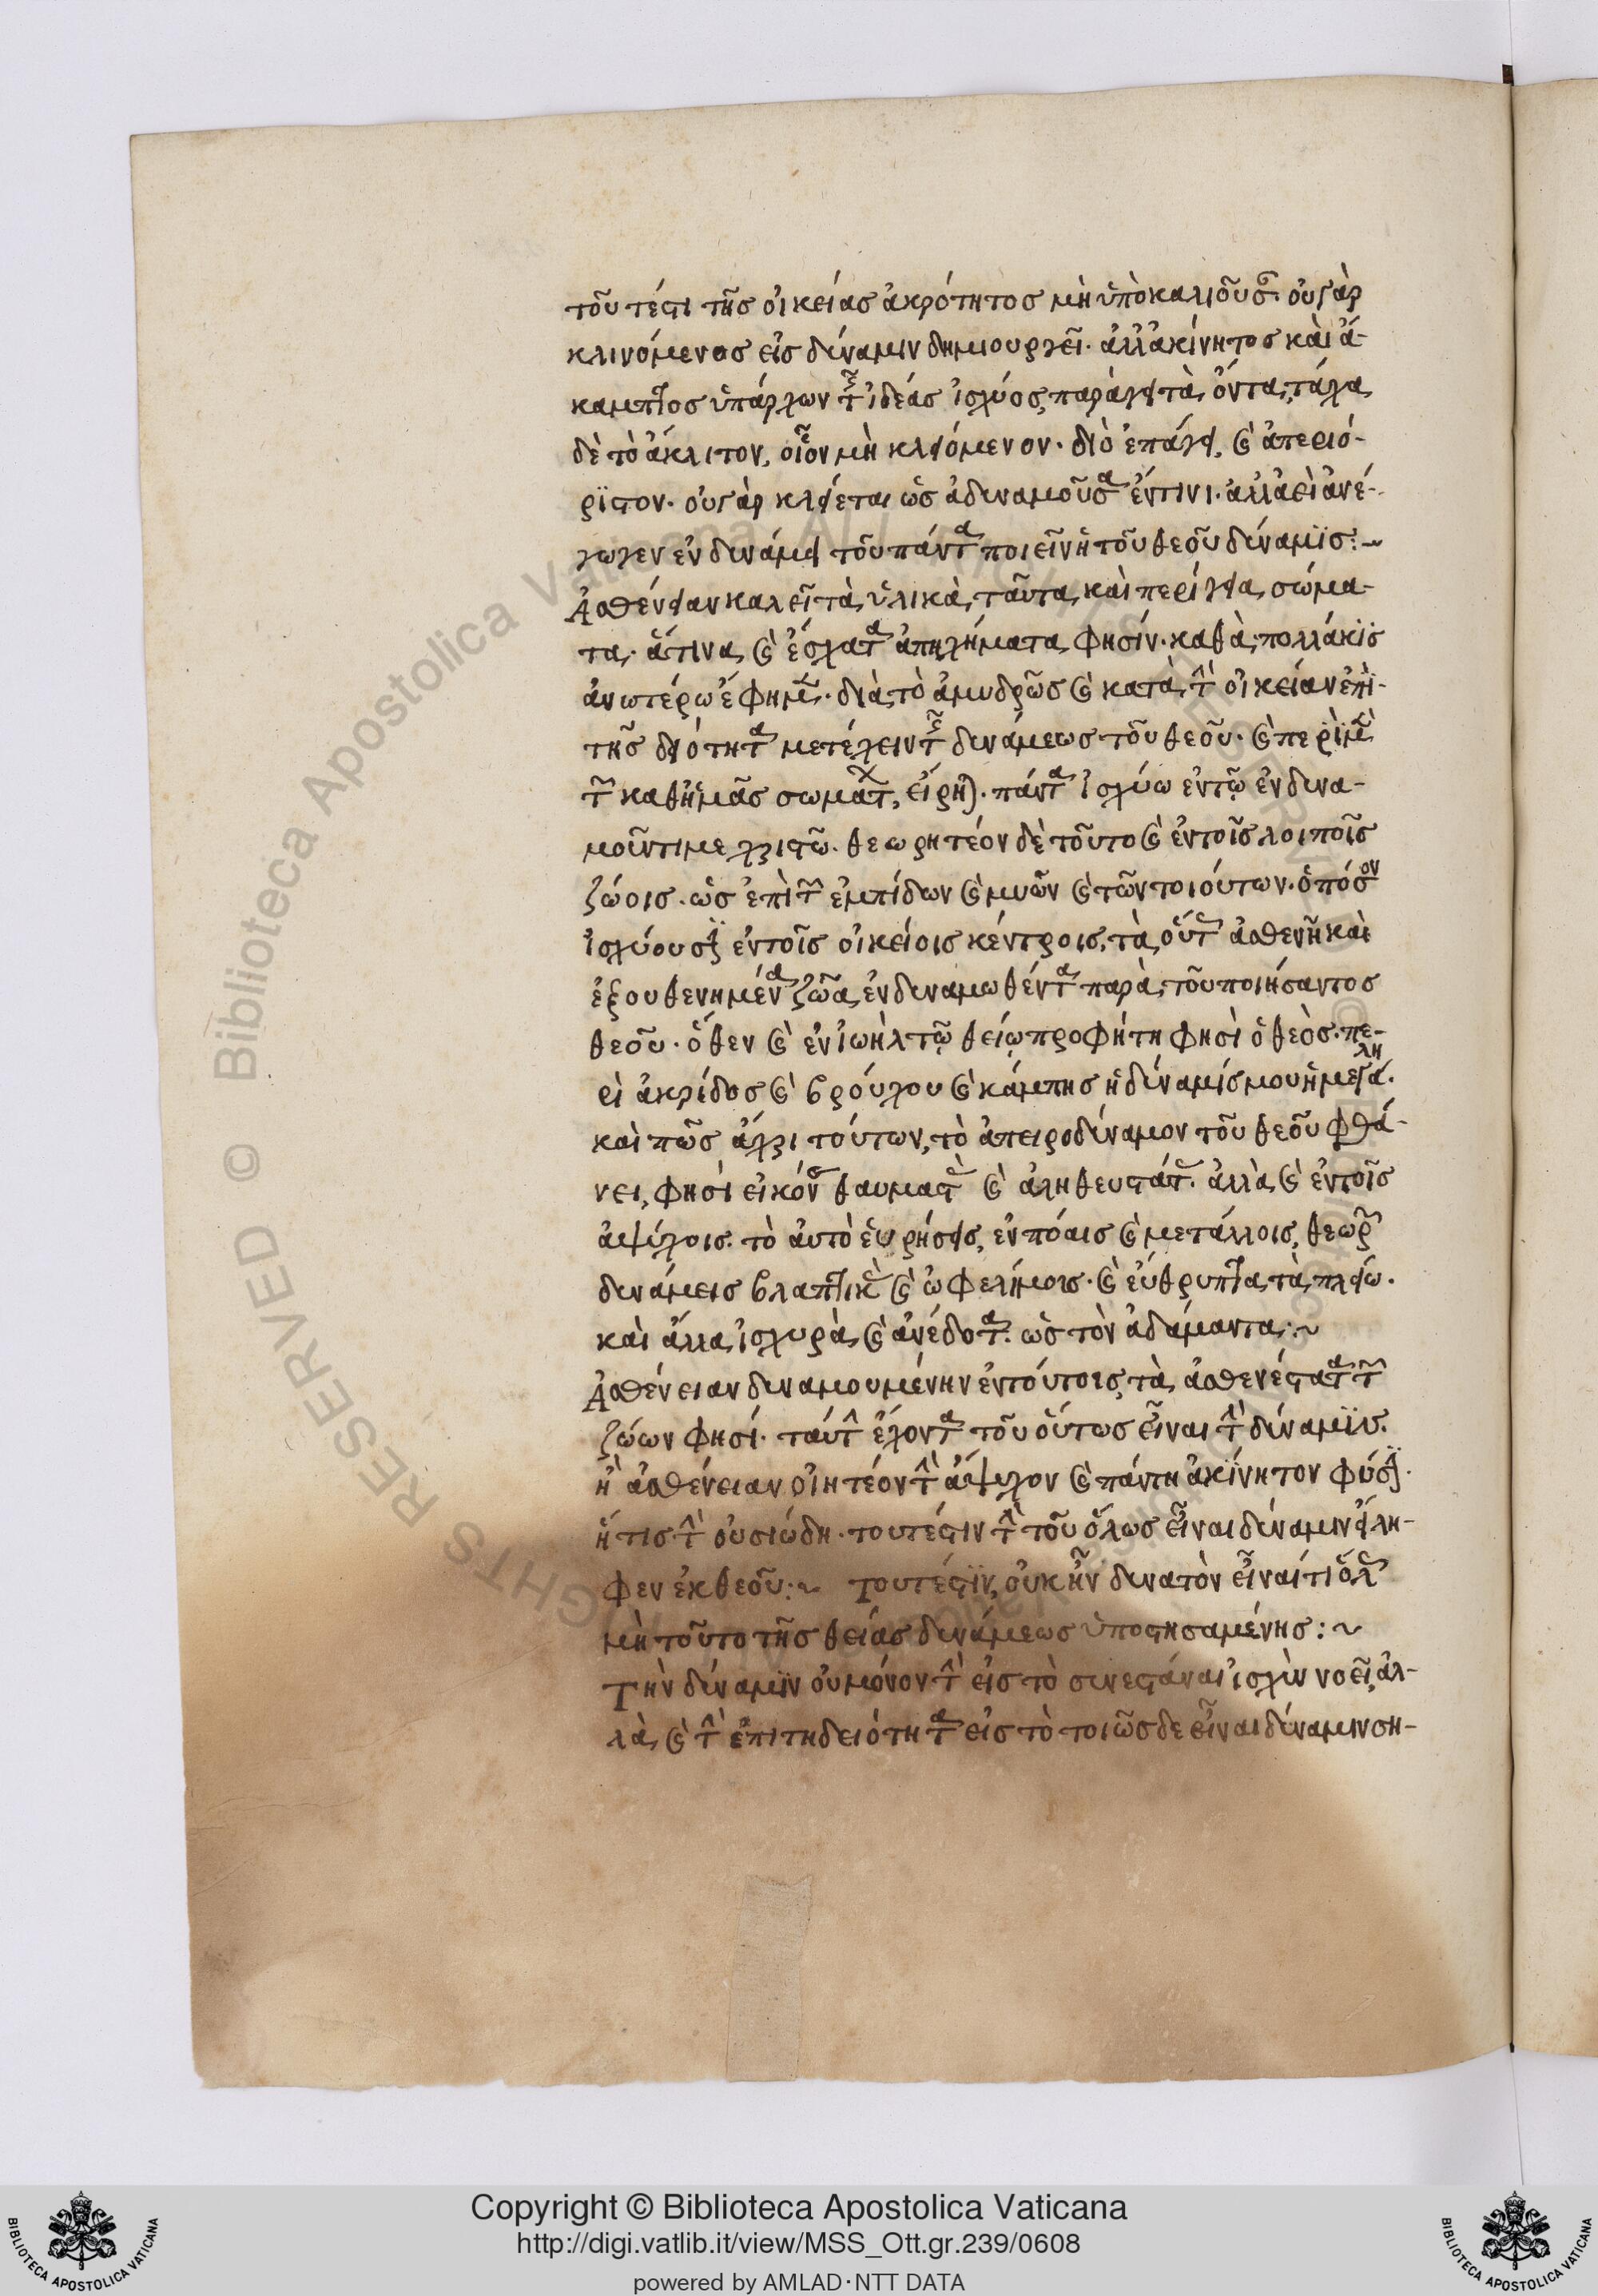 τοῦτέστι τῆς οἰκείας ἀκρότητος μὴ ὑποκαλιούσης. οὐ γὰρ
κλινόμενος εἰς δύναμιν δημιουργεῖ. ἀλλ' ἀκίνητος καὶ ἄ-
καμπτος ὑπάρχων τῆς ἰδέας ἰσχύος, παράγει τὰ ὄντα, τάχα
δὲ τὸ ἄκλιτον, οἷον μὴ κλειόμενον. διὸ ἐπάγει, καὶ ἀπεριό-
ριστον. οὐ γὰρ κλείεται ὡς ἀδυναμοῦσα ἔν τινι. ἀλλ' ἀεὶ ἀνέ-
χωλεν ἐν δυνάμει τοῦ πάντα ποιεῖν ἡ τοῦ θεοῦ δύναμις:~
Ἀσθένειαν καλεῖ τὰ ὑλικὰ ταῦτα καὶ περίγεια σώμα-
τα. ἅτινα καὶ ἔσχατα ἀπηχήματα φησίν. καθὰ πολλάκις
ἀνωτέρω ἔφημεν. διὰ τὸ ἀμυδρῶς καὶ κατὰ τὴν οἰκείαν ἐπι-
τηδειότητα μετέχειν τῆς δυνάμεως τοῦ θεοῦ. καὶ περὶ μὲν
τῶν καθ' ἡμᾶς σωμάτων, εἴρηται. πάντα ἰσχύω ἐν τῷ ἐνδυνα-
μοῦντι με χριστῷ. θεωρητέον δὲ τοῦτο καὶ ἐν τοῖς λοιποῖς
ζώοις. ὡς ἐπὶ τῶν ἐμπίδων καὶ μυῶν καὶ τῶν τοιούτων. ὁπόσον
ἰσχύουσιν ἐν τοῖς οἰκείοις κέντροις, τὰ οὕτως ἀσθενῆ καὶ
ἐξουθενημένα ζῶα, ἐνδυναμωθέντα παρὰ τοῦ ποιήσαντος
θεοῦ. ὅθεν καὶ ἐν ἰωὴλ τῷ θείῳ προφήτῃ φησὶ ὁ θεὸς. πε-
ρὶ ἀκρίδος καὶ βρούχου καὶ κάμπης ἡ δύναμίς μου ἡ μεγάλη.
καὶ πῶς ἄχρι τούτων, τὸ ἀπειροδύναμον τοῦ θεοῦ φθά-
νει, φησὶ εἰκότως θαυμαστῶς καὶ ἀληθευστάτως. ἀλλὰ καὶ ἐν τοῖς
ἀψύχοις. τὸ αὐτὸ εὑρήσεις, ἐν πόαις καὶ μετάλλοις, θεωρῶν
δυνάμεις βλαπτικὰς καὶ ὠφελήμοις. καὶ εὔθρυπτα τὰ πλείω.
καὶ ἄλλα ἰσχυρὰ καὶ ἀνέδοτα. ὡς τὸν ἀδάμαντα:~
Ἀσθένειαν δυναμουμένην ἐν τούτοις, τὰ ἀσθενέστατα τῶν
ζώων φησί. ταύτην ἔχοντα τοῦ οὕτως εἶναι τὴν δύναμιν.
ἢ ἀσθένειαν οἰητέον τὴν ἄψυχον καὶ πάντη ἀκίνητον φύσιν.
ἥτις τὴν οὐσιώδη. τουτέστιν τὴν τοῦ ὅλως εἶναι δύναμιν εἴλη-
φεν ἐκ θεοῦ:~ Τουτέστιν, οὐκ ἦν δυνατὸν εἶναί τι ὅλως
μὴ τοῦτο τῆς θείας δυνάμεως ὑποστησαμένης:~
Τὴν δύναμιν οὐ μόνον τὴν εἰς τὸ συνεστάναι ἰσχὺν νοεῖ, ἀλ-
λὰ καὶ τὴν ἐπιτηδειότητα εἰς τὸ τοιῶσδε εἶναι δύναμιν ση-
Copyright © Biblioteca Apostolica Vaticana
http://digi.vatlib.it/view/MSS_Ott.gr.239/0608
powered by AMLAD·NTT DATA